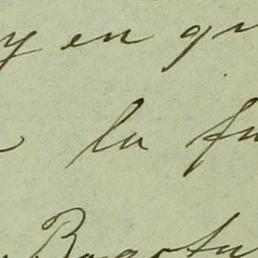 y en qu
la fu
Bogotá